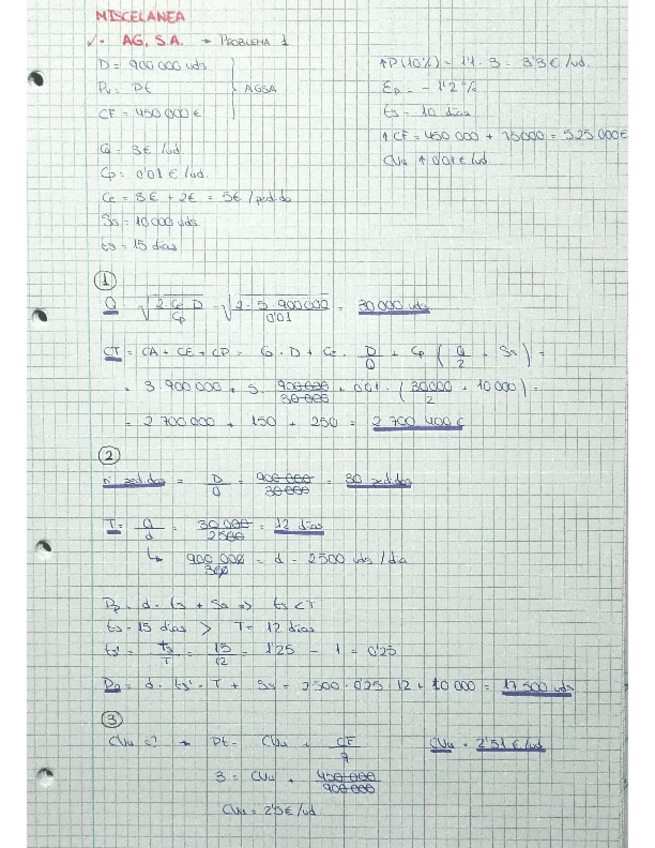 MISCELANEA
✓· AG, S.A. → PROBLEMA 1
D = 900 000 uds
Pv = Pt
CF = 450 000 €
AGSA
Cp = 0'01 € /ud.
Ce = 3€ + 2€ = 5€ /pedido
Ss = 10 000 uds
ts = 15 días
↑P(10%) = 1'1 · 3 = 3'3 € /ud.
Ep = - 1'2 %
ts = 10 días
↑ CF = 450 000 + 75000 = 525 000 €
CVu ↑ 0'01 € /ud
1
Q = √(2 · Ce · D / Cp) = √(2 · 5 · 900 000 / 0'01) = 30 000 uds
CT = CA + CE + CP = G · D + Ce · D/Q + Cp (Q/2 + Ss) =
= 3 · 900 000 + 5 · 900 000/30 000 + 0'01 · (30000/2 + 10 000) =
= 2 700 000 + 150 + 250 = 2 700 400 €
2
nº pedidos = D/Q = 900 000/30 000 = 30 pedidos
T = Q/d = 30 000/2500 = 12 días
↳ 900 000/360 = d = 2500 uds /día
Pp = d · ts + Ss => ts < T
ts = 15 días > T = 12 días
ts' = ts/T = 15/12 = 1'25 - 1 = 0'25
Pp = d · ts' · T + Ss = 2500 · 0'25 · 12 + 10 000 = 17 500 uds
3
CVu ¿? → Pt = CVu + CF/q
CVu = 2'51 € /ud
3 = CVu + 450 000/900 000
CVu = 2'5 € /ud